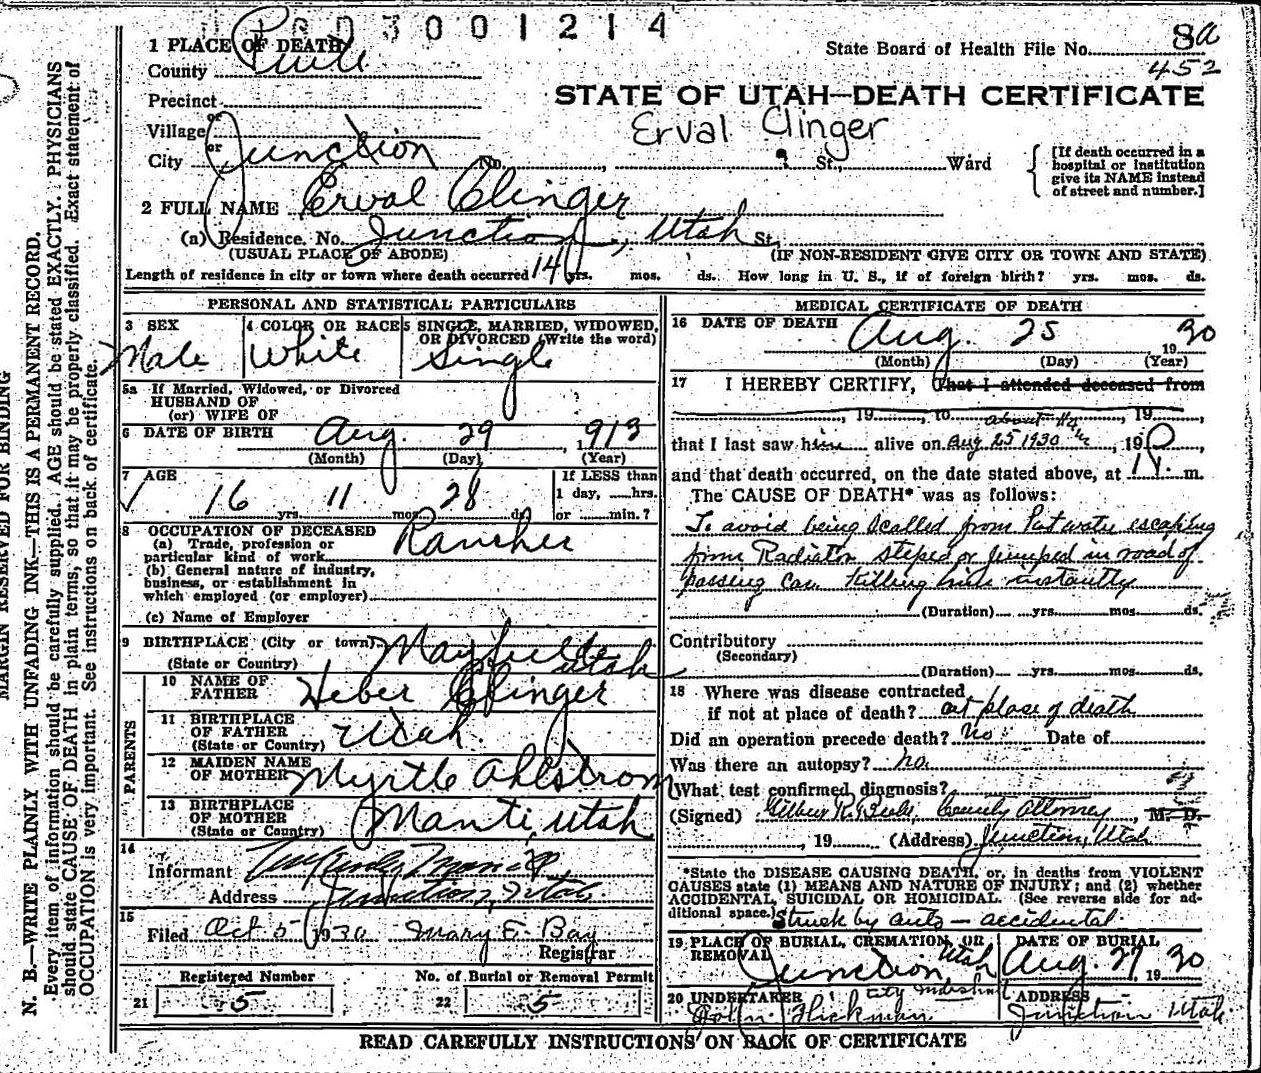 3001214
1 PLACE OF DEATH
County Piute
State Board of Health File No. 8a
452
Precinct
STATE OF UTAH—DEATH CERTIFICATE
Village
or
Erval Clinger
City Junction No. , St., Ward
[If death occurred in a
hospital or institution
give its NAME instead
of street and number.]
2 FULL NAME Erval Clinger
(a) Residence. No. Junction, Utah St.
(USUAL PLACE OF ABODE) (IF NON-RESIDENT GIVE CITY OR TOWN AND STATE)
Length of residence in city or town where death occurred 14 yrs. mos. ds. How long in U. S., if of foreign birth? yrs. mos. ds.
PERSONAL AND STATISTICAL PARTICULARS
3 SEX
Male
4 COLOR OR RACE
White
5 SINGLE, MARRIED, WIDOWED,
OR DIVORCED (Write the word)
Single
5a If Married, Widowed, or Divorced
HUSBAND OF
(or) WIFE OF
6 DATE OF BIRTH Aug. 29 1913
(Month) (Day) (Year)
7 AGE
16 yrs. 11 mos. 28 ds.
If LESS than
1 day, ......hrs.
or ......min.?
8 OCCUPATION OF DECEASED
(a) Trade, profession or
particular kind of work Rancher
(b) General nature of industry,
business, or establishment in
which employed (or employer)
(c) Name of Employer
9 BIRTHPLACE (City or town) Mayfield
(State or Country) Utah
PARENTS
10 NAME OF
FATHER Heber Clinger
11 BIRTHPLACE
OF FATHER
(State or Country) Utah.
12 MAIDEN NAME
OF MOTHER Myrtle Ahlstrom
13 BIRTHPLACE
OF MOTHER
(State or Country) Manti, Utah
14
Informant
Address Junction, Utah
15
Filed Oct 5 1930 Mary E. Bay
Registrar
Registered Number
21 5
No. of Burial or Removal Permit
22 5
MEDICAL CERTIFICATE OF DEATH
16 DATE OF DEATH Aug. 25 1930
(Month) (Day) (Year)
17 I HEREBY CERTIFY, That I attended deceased from
, 19 to , 19
about
that I last saw him alive on Aug 25 1930, 19
and that death occurred, on the date stated above, at m.
The CAUSE OF DEATH* was as follows:
To avoid being scalled from hot water escaping
from Radiator steped or jumped in road of
passing car. Killing him instantly
(Duration) yrs. mos. ds.
Contributory
(Secondary)
(Duration) yrs. mos. ds.
18 Where was disease contracted
if not at place of death? at place of death
Did an operation precede death? No Date of
Was there an autopsy? no.
What test confirmed diagnosis?
(Signed) R. Beebe, County Attorney, M. D.
, 19 (Address) Junction, Utah
*State the DISEASE CAUSING DEATH, or, in deaths from VIOLENT
CAUSES state (1) MEANS AND NATURE OF INJURY; and (2) whether
ACCIDENTAL, SUICIDAL OR HOMICIDAL. (See reverse side for ad-
ditional space.) Struck by auto — accidental.
19 PLACE OF BURIAL, CREMATION, OR
REMOVAL
Junction Utah
DATE OF BURIAL
Aug. 27 1930
20 UNDERTAKER City
John Hickman
ADDRESS
Junction Utah
READ CAREFULLY INSTRUCTIONS ON BACK OF CERTIFICATE
MARGIN RESERVED FOR BINDING
N. B.—WRITE PLAINLY WITH UNFADING INK—THIS IS A PERMANENT RECORD.
Every item of information should be carefully supplied. AGE should be stated EXACTLY. PHYSICIANS
should state CAUSE OF DEATH in plain terms, so that it may be properly classified. Exact statement of
OCCUPATION is very important. See instructions on back of certificate.